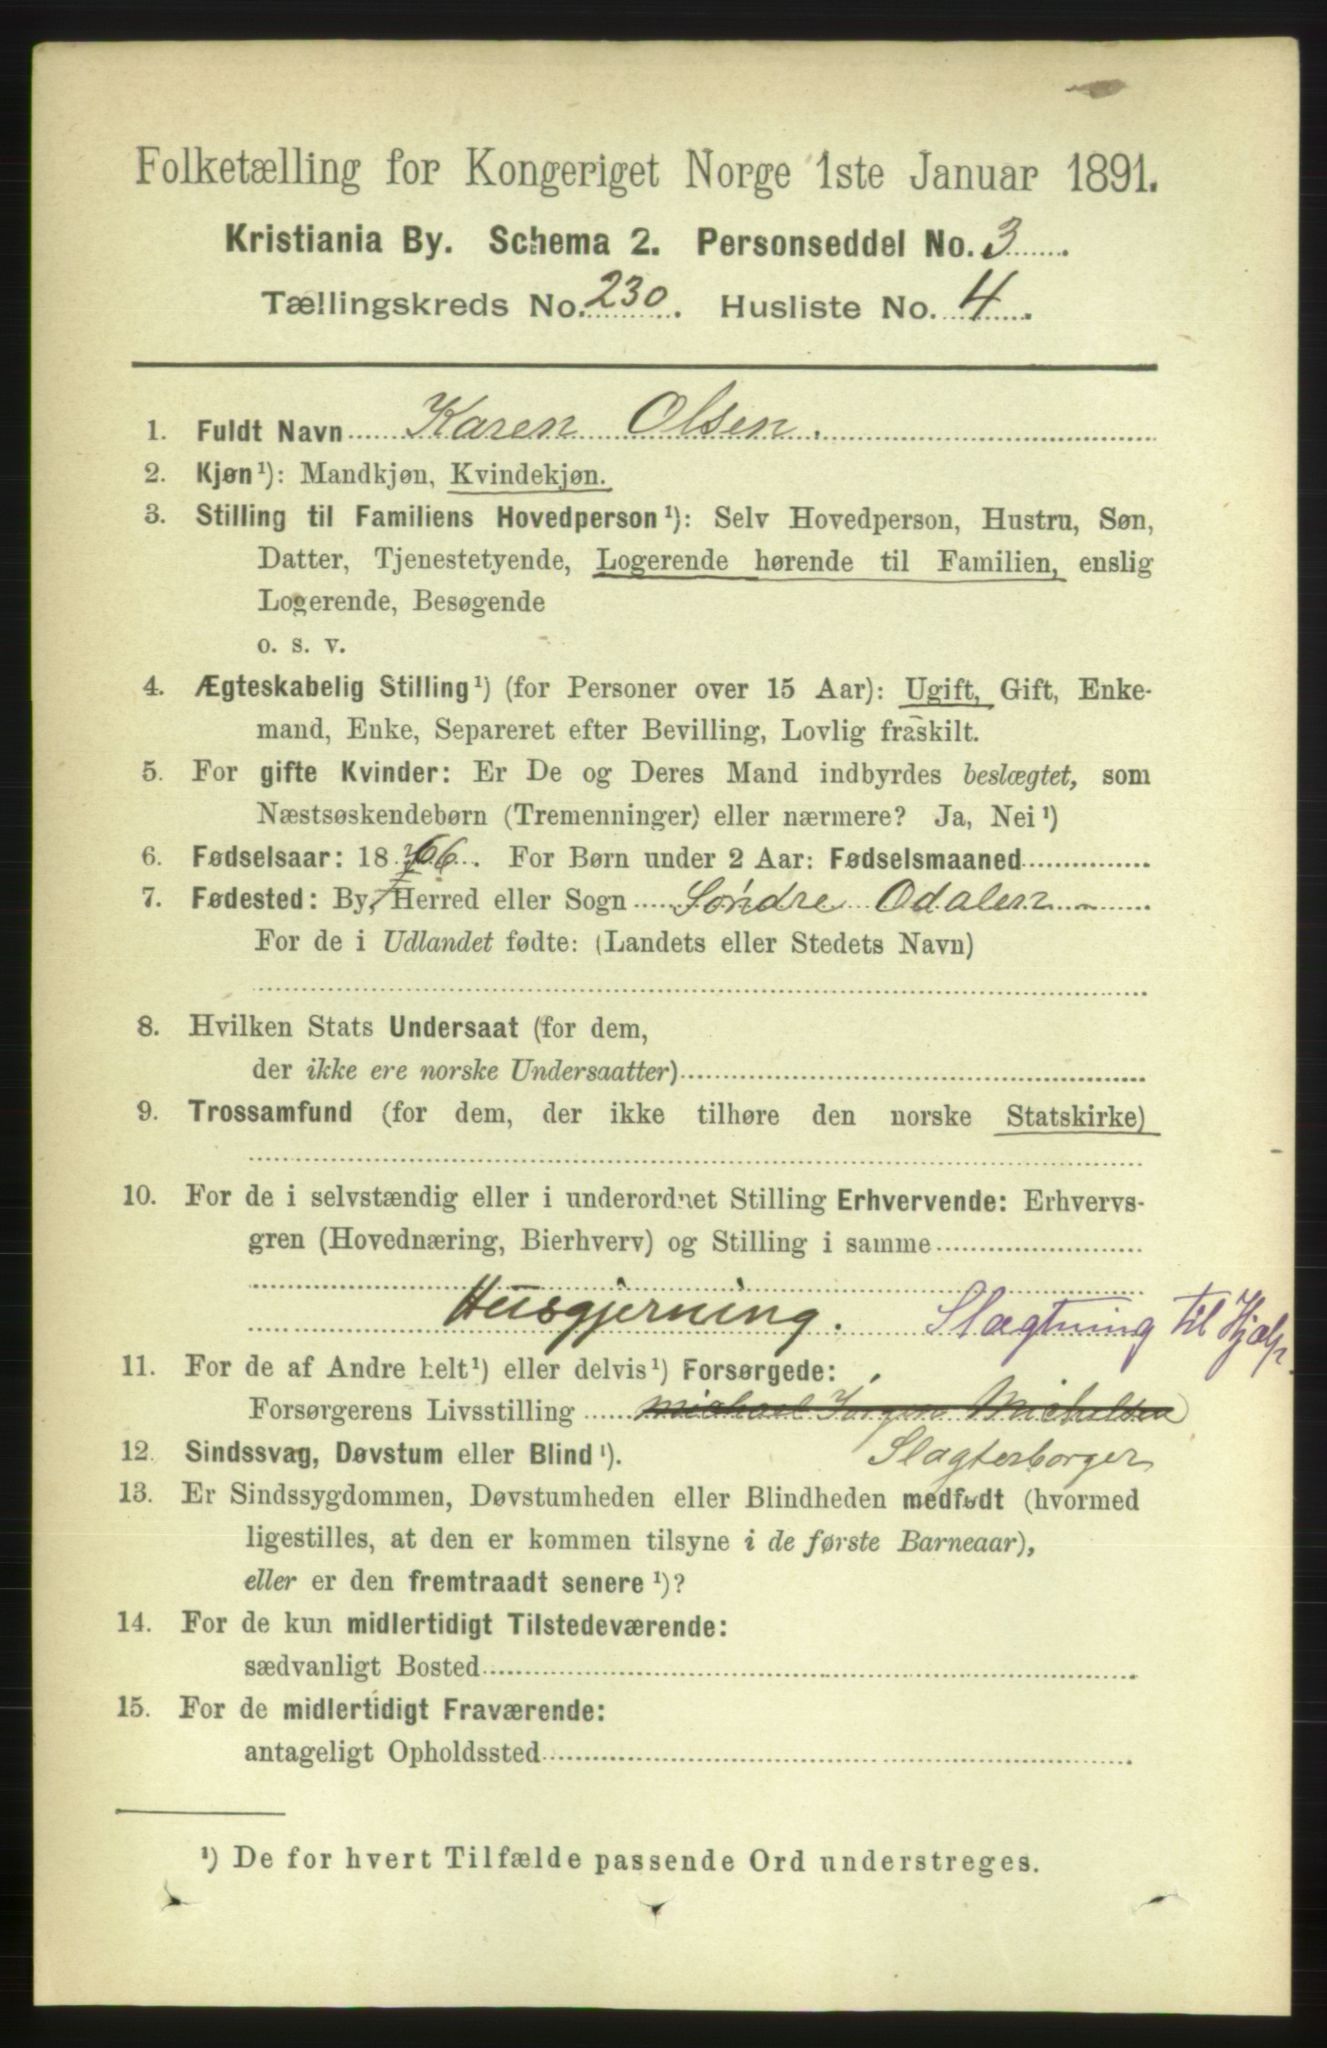 Folketælling for Kongeriget Norge 1ste Januar 1891.
Kristiania By. Schema 2. Personseddel No. 3
Tællingskreds No. 230. Husliste No. 4.
1. Fuldt Navn Karen Olsen.
2. Kjøn¹): Mandkjøn, Kvindekjøn.
3. Stilling til Familiens Hovedperson¹): Selv Hovedperson, Hustru, Søn,
Datter, Tjenestetyende, Logerende hørende til Familien, enslig
Logerende, Besøgende
o. s. v.
4. Ægteskabelig Stilling¹) (for Personer over 15 Aar): Ugift, Gift, Enke-
mand, Enke, Separeret efter Bevilling, Lovlig fraskilt.
5. For gifte Kvinder: Er De og Deres Mand indbyrdes beslægtet, som
Næstsøskendebørn (Tremenninger) eller nærmere? Ja, Nei¹)
6. Fødselsaar: 1866. For Børn under 2 Aar: Fødselsmaaned
7. Fødested: By, Herred eller Sogn Söndre Odalen
For de i Udlandet fødte: (Landets eller Stedets Navn)
8. Hvilken Stats Undersaat (for dem,
der ikke ere norske Undersaatter)
9. Trossamfund (for dem, der ikke tilhøre den norske Statskirke)
10. For de i selvstændig eller i underordnet Stilling Erhvervende: Erhvervs-
gren (Hovednæring, Bierhverv) og Stilling i samme
Husgjerning. Slagtning til Hjælp.
11. For de af Andre helt¹) eller delvis¹) Forsørgede:
Forsørgerens Livsstilling Michael Jörgen Michelsen
Slagterborger
12. Sindssvag, Døvstum eller Blind¹).
13. Er Sindssygdommen, Døvstumheden eller Blindheden medfødt (hvormed
ligestilles, at den er kommen tilsyne i de første Barneaar),
eller er den fremtraadt senere¹)?
14. For de kun midlertidigt Tilstedeværende:
sædvanligt Bosted
15. For de midlertidigt Fraværende:
antageligt Opholdssted
¹) De for hvert Tilfælde passende Ord understreges.